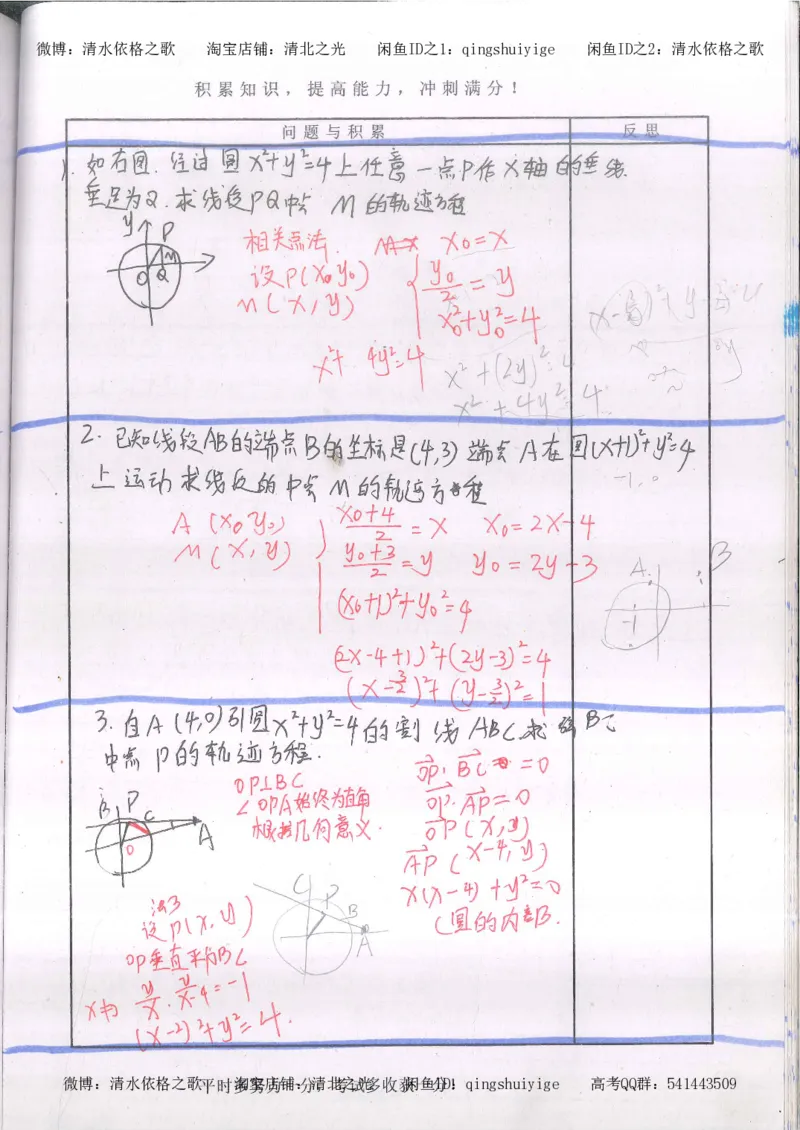 微博：清水依格之歌 淘宝店铺：清北之光 闲鱼ID之1：qingshuiyige 闲鱼ID之2：清水依格之歌
积累知识，提高能力，冲刺满分！
问题与积累 反思
1. 如右图，经过圆x²+y²=4上任意一点P作x轴的垂线
垂足为Q，求线段PQ中点 M的轨迹方程
y P
M
O Q
相关点法
设P(x₀y₀)
M(x,y)
x₀=x
y₀/2=y
x₀²+y₀²=4
x²+4y²=4
x²+(2y)²=4
x²+4y²=4
2. 已知线段AB的端点B的坐标是(4,3)端点A在圆(x+1)²+y²=4
上运动求线段的中点M的轨迹方程
-1,0
A(x₀y₀)
M(x,y)
x₀+4/2=x x₀=2x-4
y₀+3/2=y y₀=2y-3
(x₀+1)²+y₀²=4
A B
-1
(2x-4+1)²+(2y-3)²=4
(x-3/2)²+(y-3/2)²=1
3. 自A(4,0)引圆x²+y²=4的割线ABC,求弦BC
中点P的轨迹方程.
B P C
O A
OP⊥BC
∠OPA始终为直角
根据几何意义.
OP·BC=0
OP·AP=0
OP(x,y)
AP(x-4,y)
x(x-4)+y²=0
(圆的内部.
C P B
A
法3
设P(x,y)
OP垂直平分BC
y/x·y/x-4=-1
(x-2)²+y²=4.
微博：清水依格之歌 淘宝店铺：清北之光 闲鱼ID：qingshuiyige 高考QQ群：541443509
平时多努力一分，考试多收获一分！